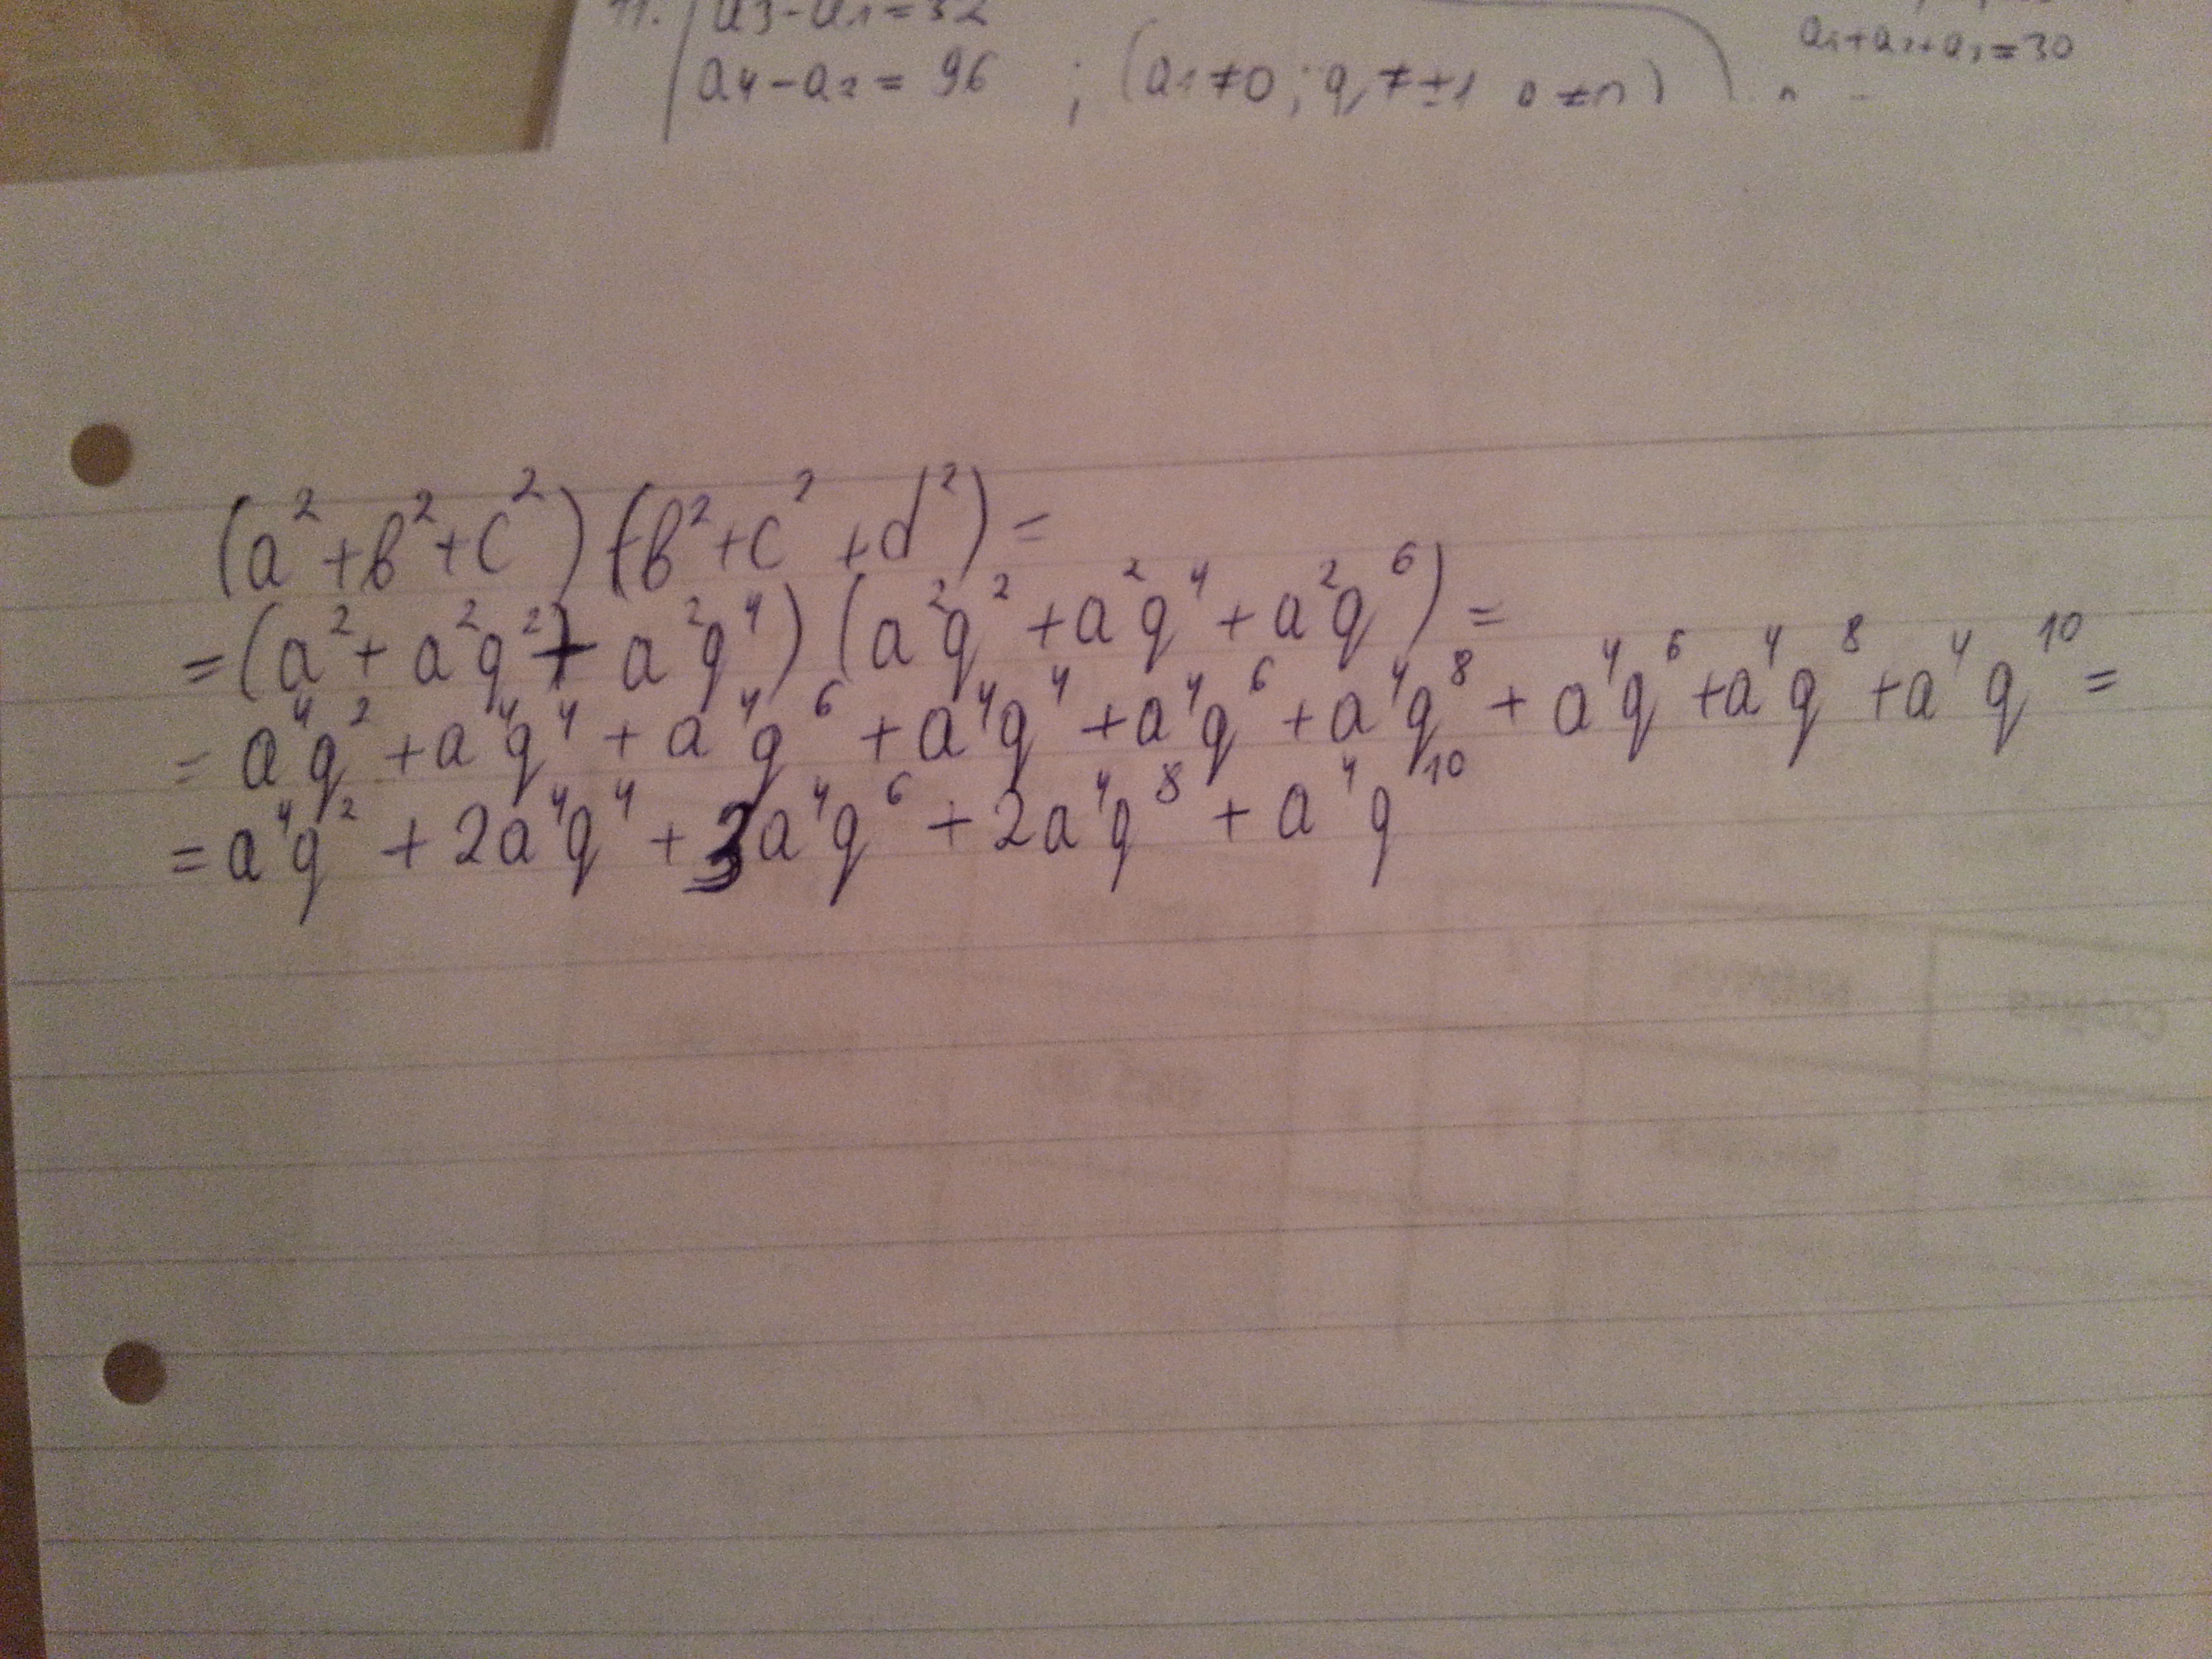 11. a₃-a₁=32
a₄-a₂=96 ; (a₁≠0; q≠±1
a₁+a₂+a₃=30
(a²+b²+c²)(b²+c²+d²)=
=(a²+a²q²+a²q⁴)(a²q²+a²q⁴+a²q⁶)=
=a⁴q²+a⁴q⁴+a⁴q⁶+a⁴q⁴+a⁴q⁶+a⁴q⁸+a⁴q⁶+a⁴q⁸+a⁴q¹⁰=
=a⁴q²+2a⁴q⁴+3a⁴q⁶+2a⁴q⁸+a⁴q¹⁰